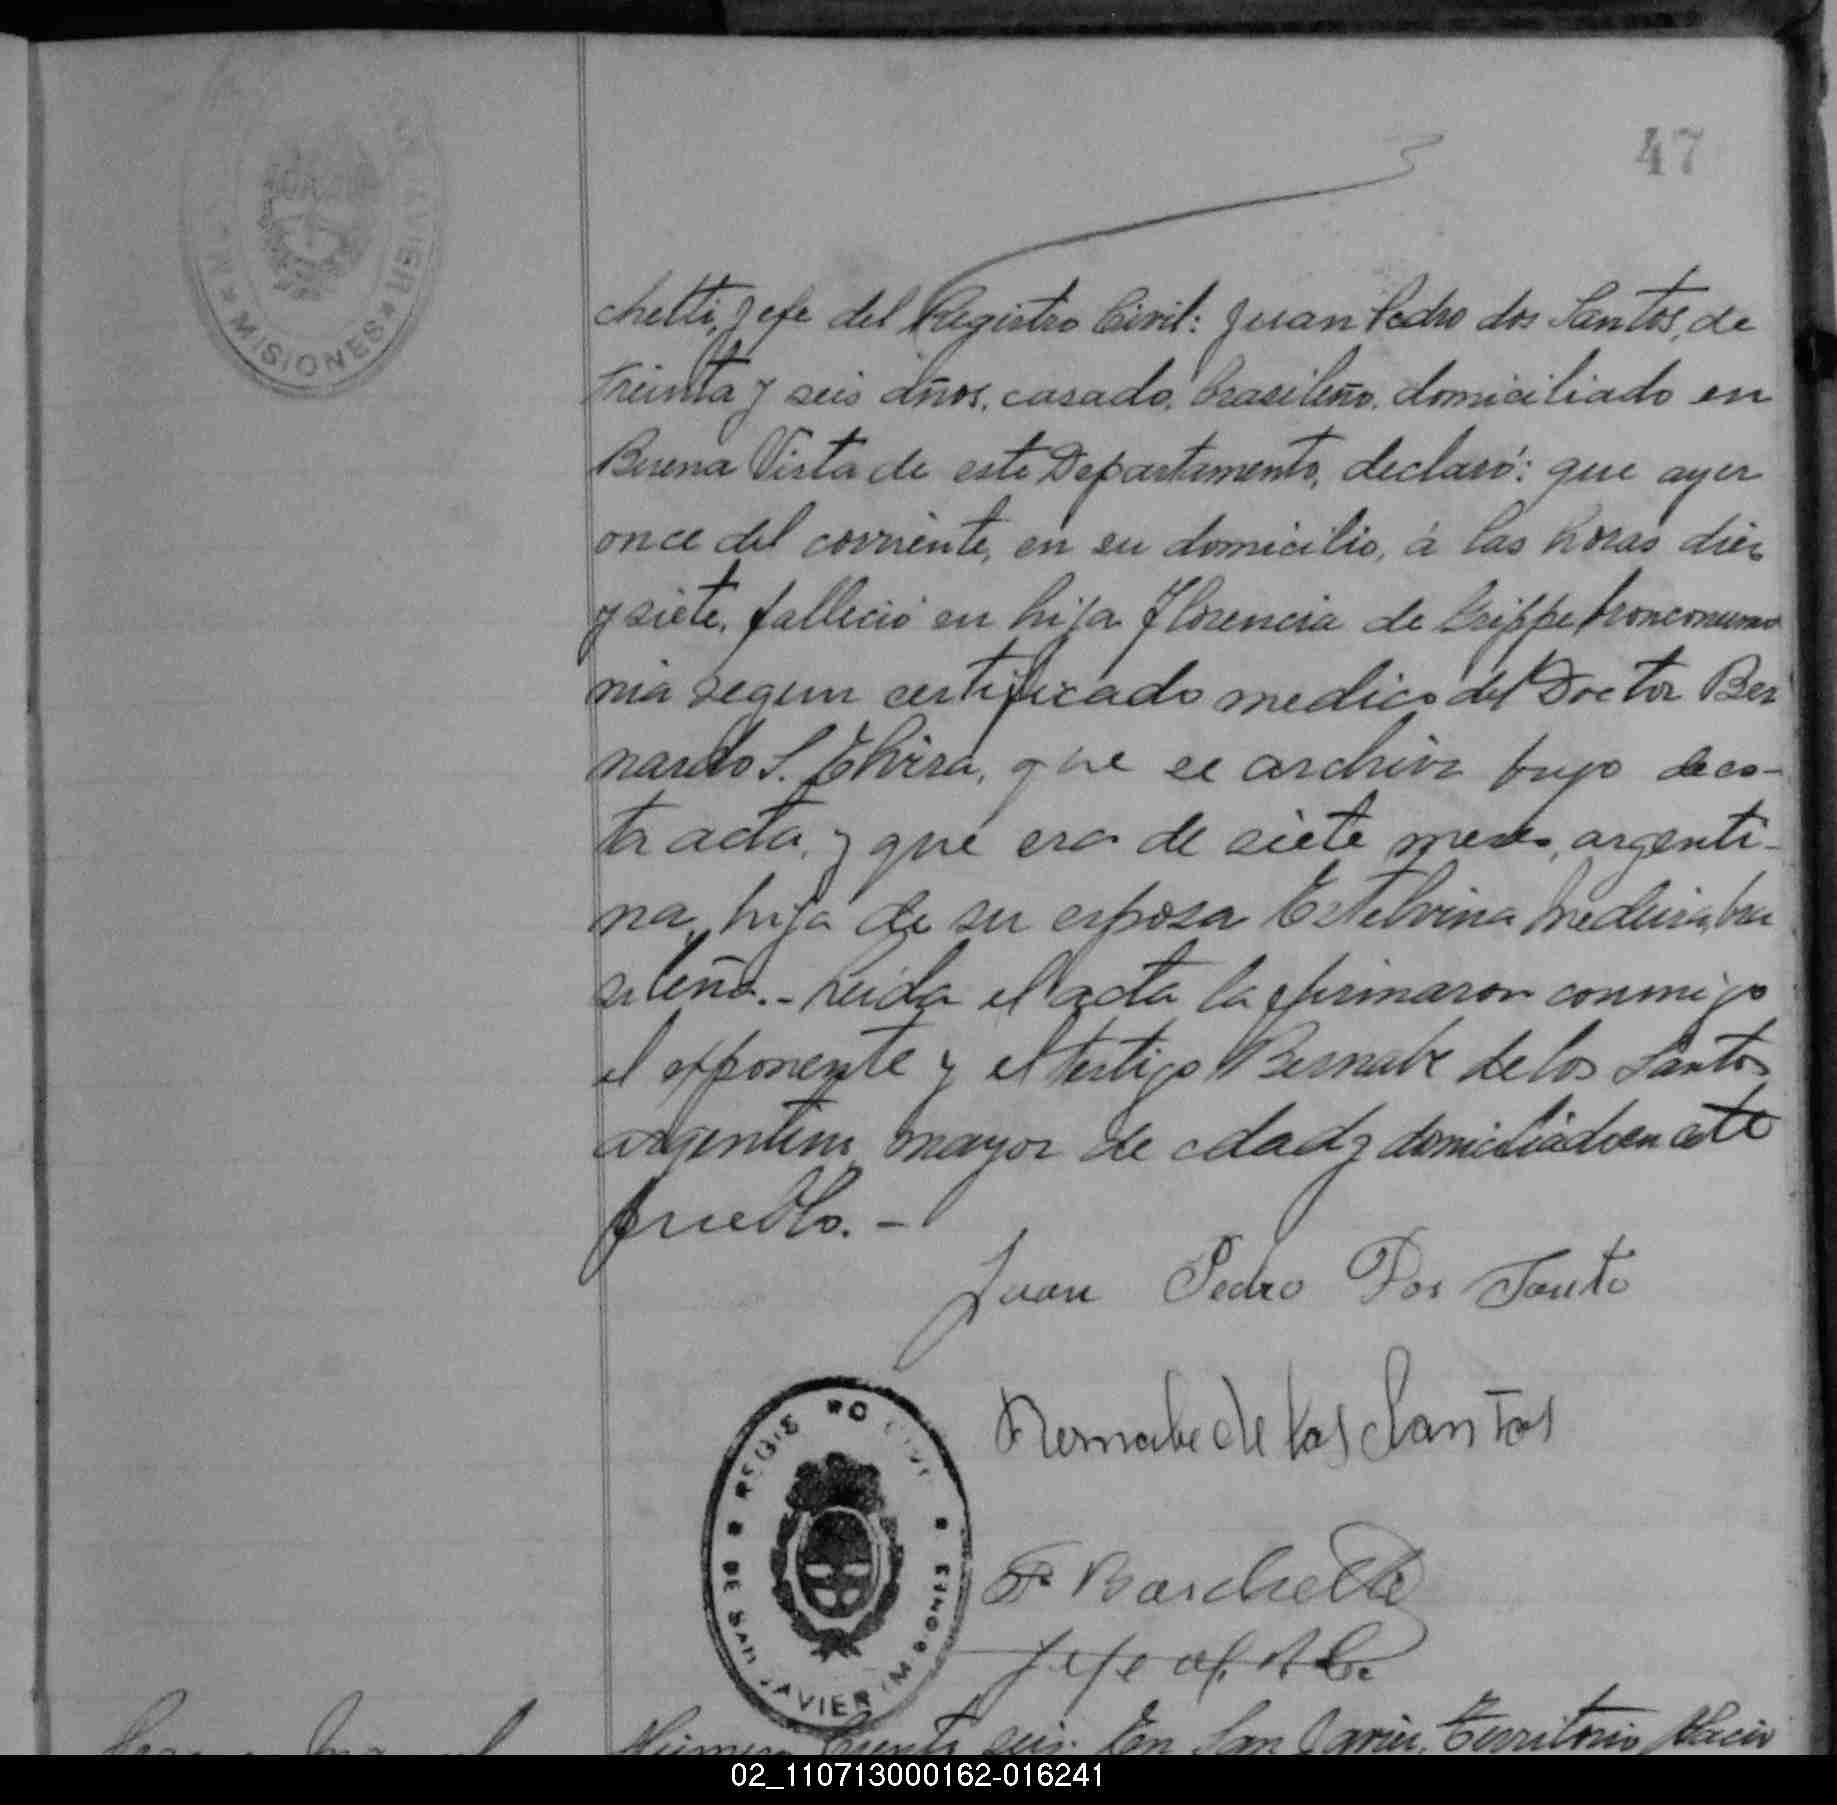 47
MISIONES
chetti, Jefe del Registro Civil: Juan Pedro dos Santos, de
treinta y seis años, casado, brasileño, domiciliado en
Buena Vista de este Departamento, declaró: que ayer
once del corriente, en su domicilio, á las horas diez
y siete, falleció su hija Florencia de Grippe bronconeumo
nia segun certificado medico del Doctor Ber
nardo S. Elvira, que se archiva bajo de es-
ta acta, y que era de siete meses, argenti-
na, hija de su esposa Estelvina Medeira, bra
sileña.- Leida el acta la firmaron conmigo
el exponente y el testigo Bernabe de los Santos
argentino, mayor de edad y domiciliado en este
pueblo.-
Juan Pedro Dos Santo
Bernabe de los Santos
F. Barchetti
Jefe del R. C.
REGIS RO CIVI
DE SAN JAVIER (MISIONES
Número Treinta seis. En San Javier, Territorio Nacio
02_110713000162-016241